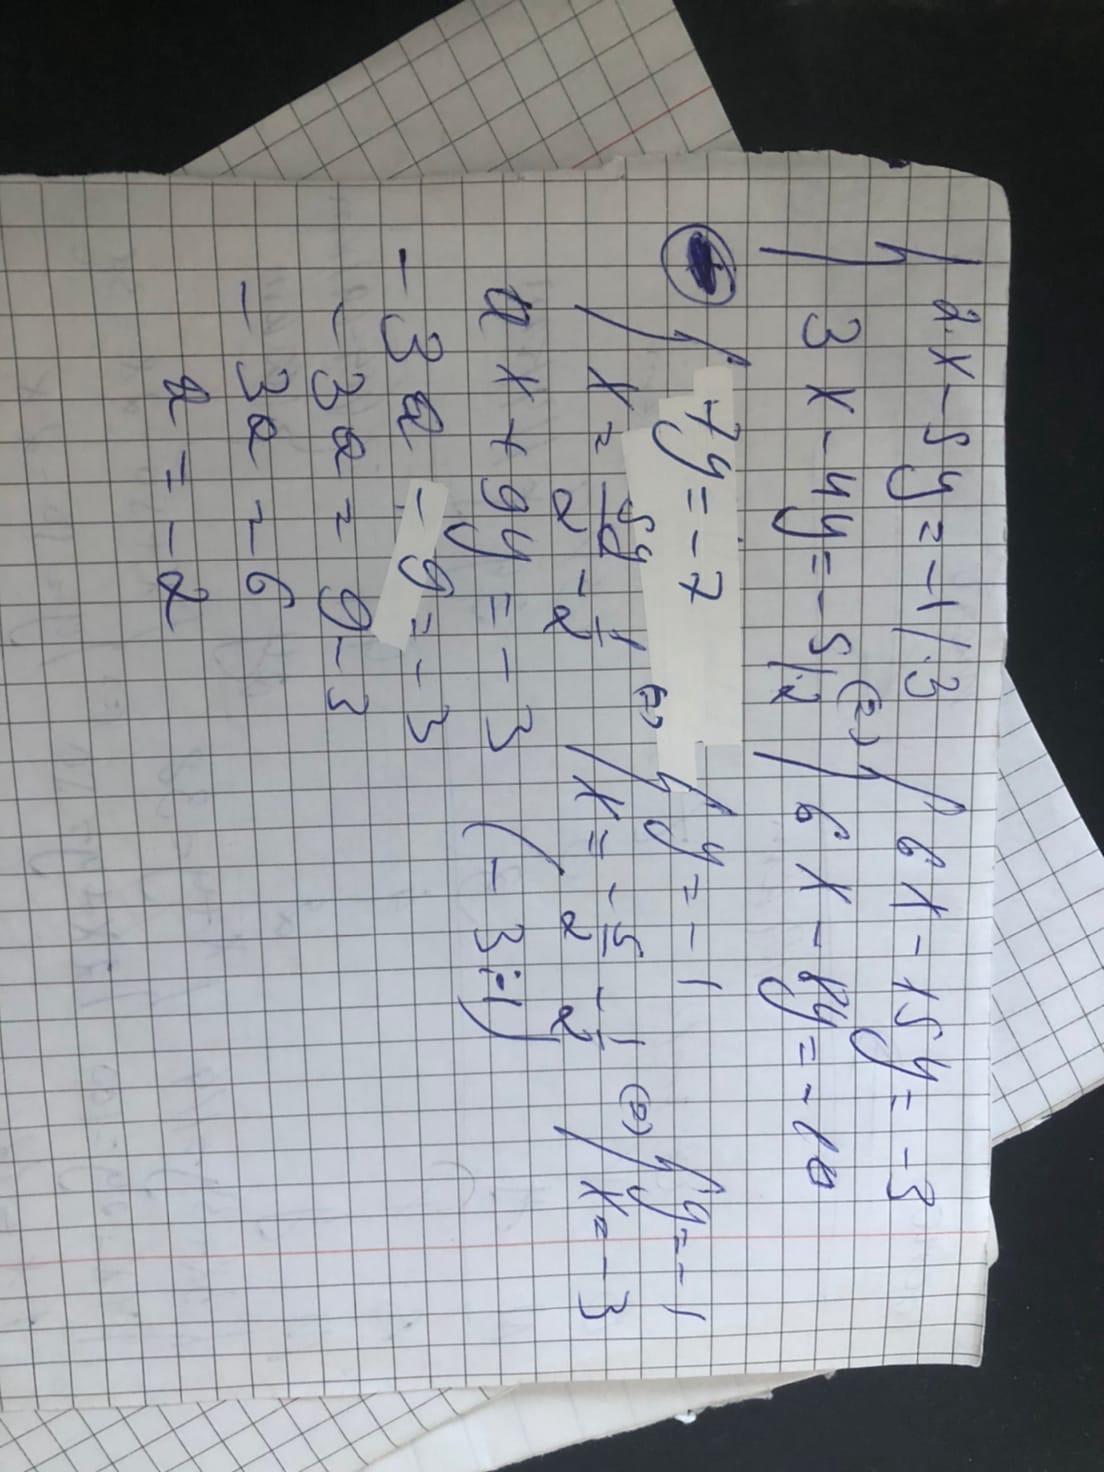 { 2x - 5y = -1 /·3
{ 3x - 4y = -5 /·2 (=) { 6x - 15y = -3
{ 6x - 8y = -10
{ 7y = -7
{ x = 5y/2 - 1/2 (=) { y = -1
{ x = -5/2 - 1/2 (=) { y = -1
{ x = -3
(-3; -1)
ax + 9y = -3
-3a - 9 = -3
-3a = 9 - 3
-3a = 6
a = -2